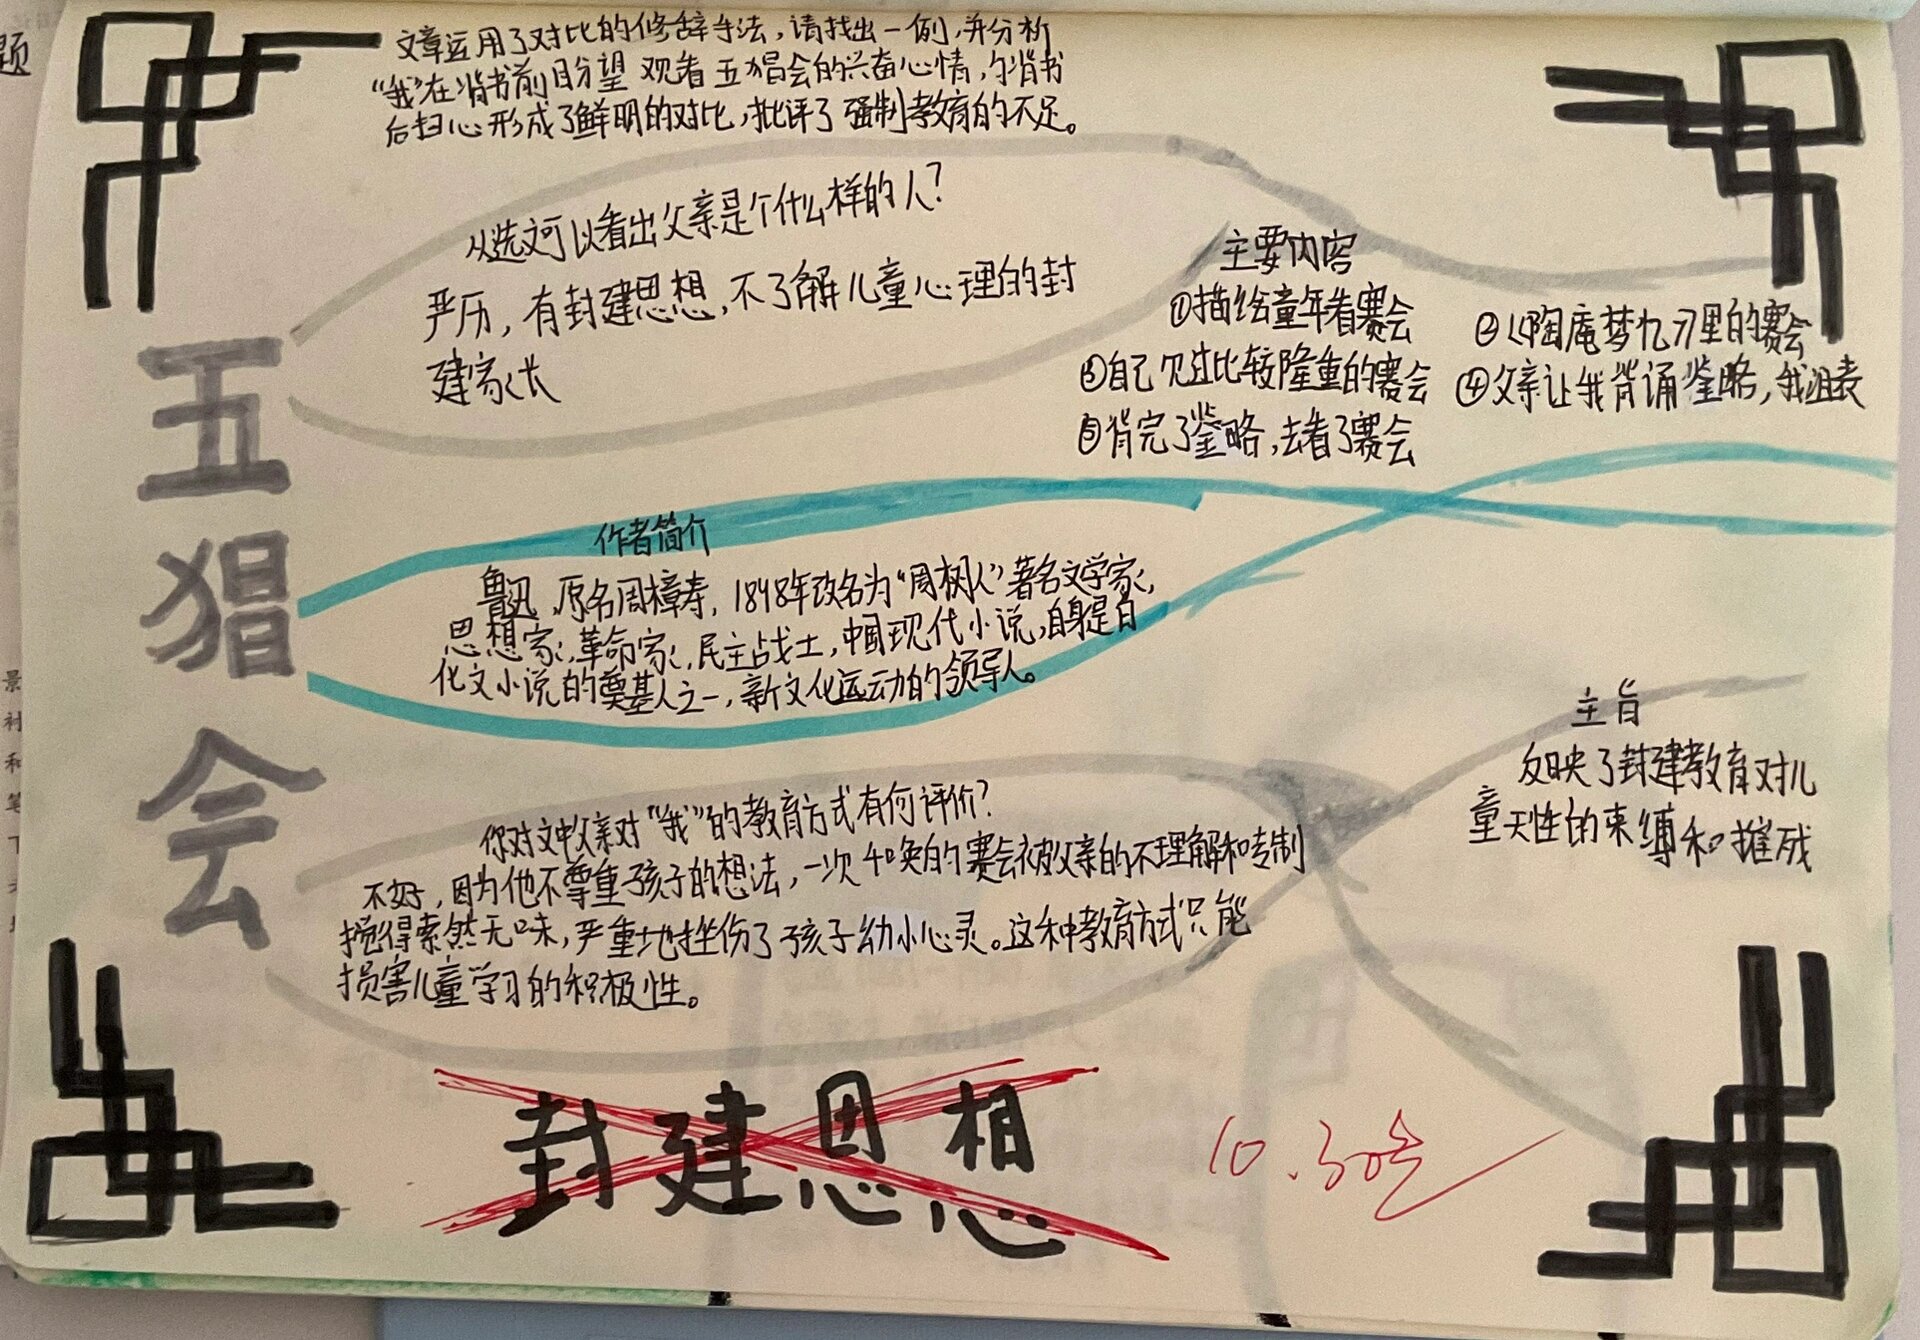 文章运用了对比的修辞手法，请找出一例，并分析
“我”在背书前盼望观看五猖会的兴奋心情，与背书
后扫心形成了鲜明的对比，批评了强制教育的不足。
从选文可以看出父亲是个什么样的人？
严历，有封建思想，不了解儿童心理的封
建家长
主要内容
①描绘童年看赛会
②《陶庵梦忆》里的赛会
③自己见过比较隆重的赛会
④父亲让我背诵鉴略，我沮丧
⑤背完了鉴略，去看了赛会
五猖会
作者简介
鲁迅，原名周樟寿，1898年改名为“周树人”著名文学家，
思想家，革命家，民主战士，中国现代小说，白话
化文小说的奠基人之一，新文化运动的领导人。
主旨
反映了封建教育对儿
童天性的束缚和摧残
你对文中父亲对“我”的教育方式有何评价？
不好，因为他不尊重孩子的想法，一次的赛会被父亲的不理解和专制
搅得索然无味，严重地挫伤了孩子幼小心灵。这种教育方式只能
损害儿童学习的积极性。
封建思想
10.30
题